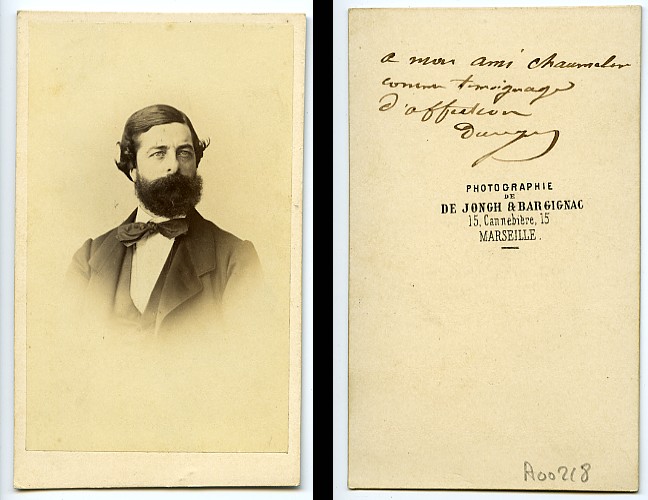 a mon ami chaumelin
comme temoignage
d'affection
PHOTOGRAPHIE
DE
DE JONGH & BARGIGNAC
15, Cannebière, 15
MARSEILLE.
A00218